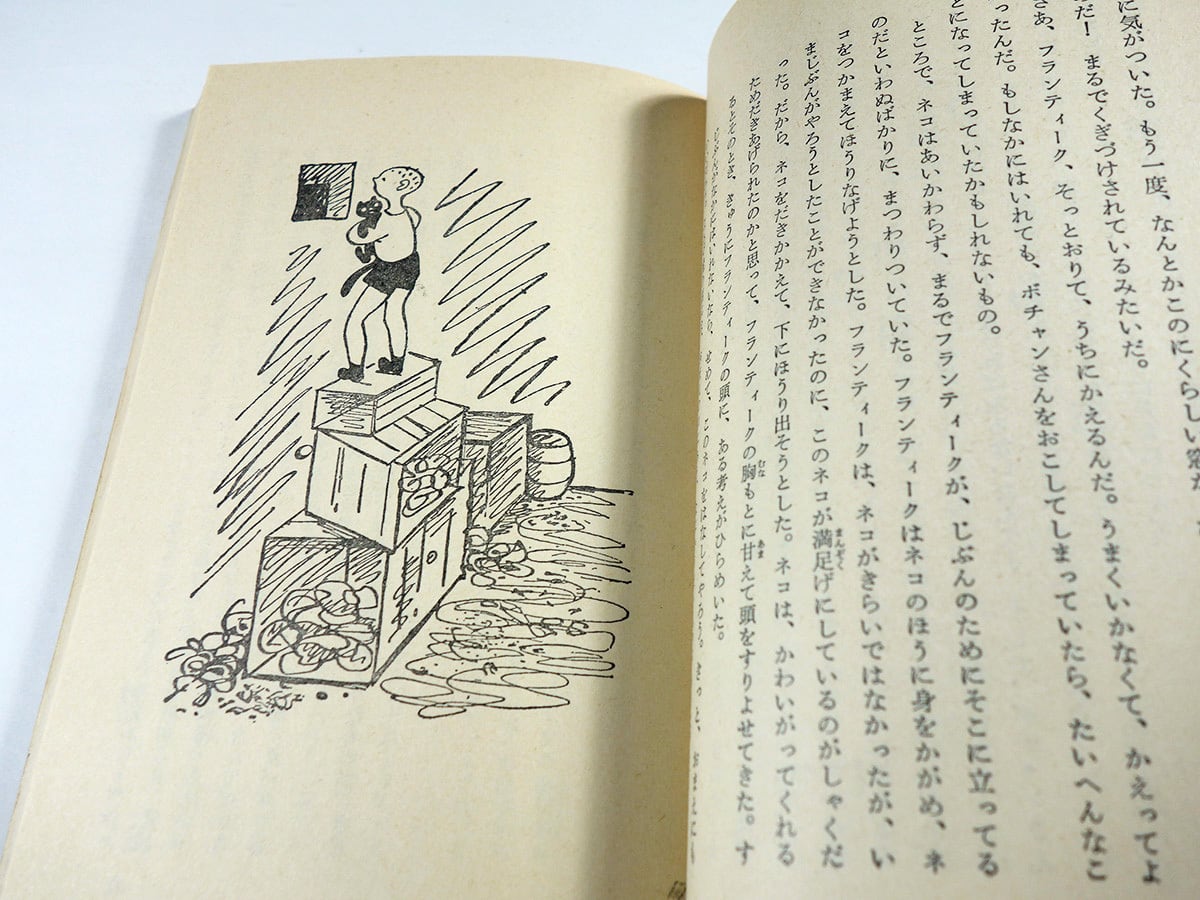 に気がついた。もう一度、なんとかこのにくらしい窓が
だ！　まるでくぎづけされているみたいだ。
さあ、フランティーク、そっとおりて、うちにかえるんだ。うまくいかなくて、かえってよ
ったんだ。もしなかにはいれても、ボチャンさんをおこしてしまっていたら、たいへんなこ
とになってしまっていたかもしれないもの。
ところで、ネコはあいかわらず、まるでフランティークが、じぶんのためにそこに立ってる
のだといわぬばかりに、まつわりついていた。フランティークはネコのほうに身をかがめ、ネ
コをつかまえてほうりなげようとした。フランティークは、ネコがきらいではなかったが、い
まじぶんがやろうとしたことができなかったのに、このネコが満足げにしているのがしゃくだ
った。だから、ネコをだきかかえて、下にほうり出そうとした。ネコは、かわいがってくれる
ためだきあげられたのかと思って、フランティークの胸もとに甘えて頭をすりよせてきた。す
るとそのとき、きゅうにフランティークの頭に、ある考えがひらめいた。
じぶんがなかにはいれないなら、せめて、このネコをはなしてやろう。きっと、おまえにも